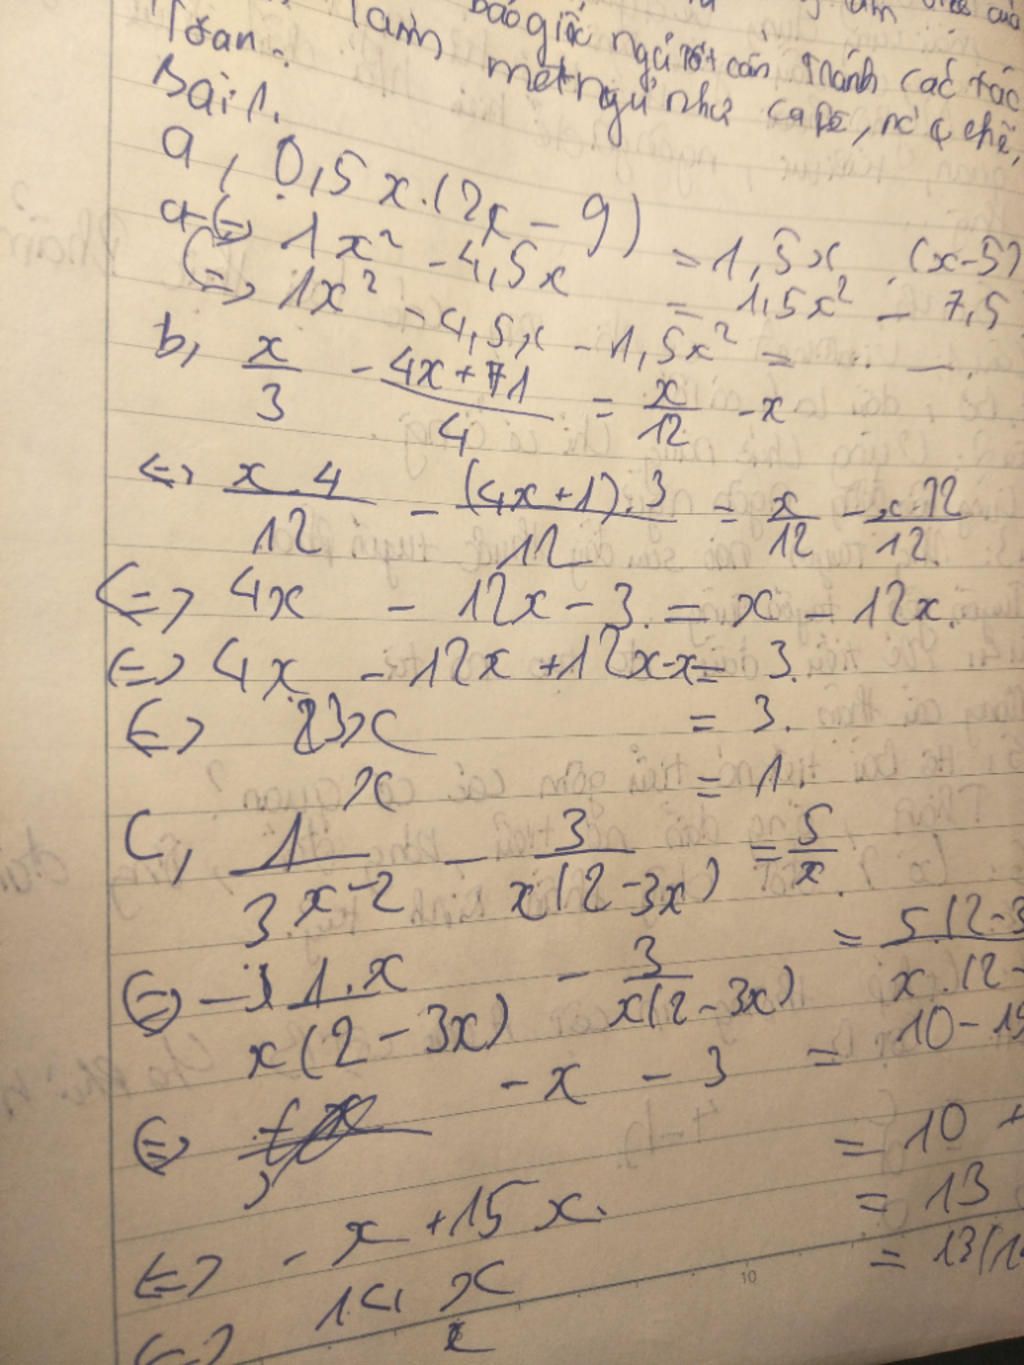 báo giấc ngủ tốt cần tránh các tác
Toán. làm mất ngủ như cafe, nước chè,
Bài 1.
a, 0,5x.(2x - 9) = 1,5x.(x-5)
<=> 1x² - 4,5x = 1,5x² - 7,5
<=> 1x² - 4,5x - 1,5x² =
b, x/3 - (4x+1)/4 = x/12 - x
<=> x.4/12 - (4x+1).3/12 = x/12 - x.12/12
<=> 4x - 12x - 3 = x - 12x.
<=> 4x - 12x + 12x - x = 3.
<=> 3x = 3.
x = 1.
c, 1/(3x-2) - 3/(x(2-3x)) = 5/x
<=> -1.x/(x(2-3x)) - 3/(x(2-3x)) = 5.(2-3/x.(2-
<=> -x - 3 = 10 - 15
= 10 +
<=> -x + 15x = 13
<=> 14x = 13